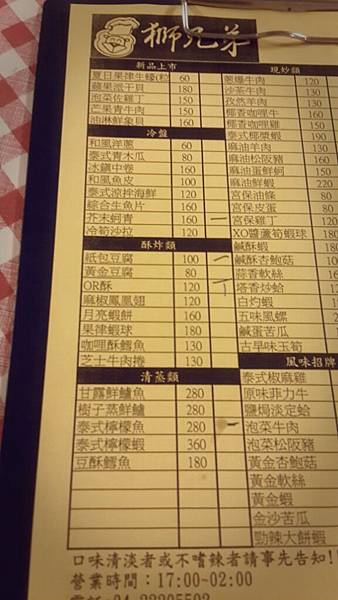 獅兄弟
新品上市
夏日果律生蠔(粒 60
蘋果派干貝 180
泡菜佐雞丁 150
芒果青牛肉 150
油淋鮮象貝 160
冷盤
和風洋蔥 60
泰式青木瓜 80
冰鎮中卷 160
和風魚皮 100
泰式涼拌海鮮 120
綜合生魚片 160
芥末蚵青 160
冷筍沙拉 120
酥炸類
紙包豆腐 100
黃金豆腐 80
OR酥 120
麻椒鳳凰翅 120
月亮蝦餅 160
果律蝦球 180
咖哩酥鱈魚 130
芝士牛肉捲 130
清蒸類
甘露鮮鱸魚 280
樹子蒸鮮鱸 280
泰式檸檬魚 280
泰式檸檬蝦 360
豆酥鱈魚 180
現炒類
蔥爆牛肉 120
沙茶牛肉 130
孜然羊肉 130
椰香咖哩牛 160
椰香咖哩雞 150
泰式椰漿蝦 190
麻油羊肉 130
麻油松阪豬 160
麻油蛋鮮蚵 150
麻油鮮蝦 220
宮保油條
宮保皮蛋
宮保雞丁
XO醬蘆筍蝦球
鹹酥蝦
鹹酥杏鮑菇
蒜香軟絲
塔香炒蛤
白灼蝦
五味風螺
鹹蛋苦瓜
古早味玉筍
風味招牌
泰式椒麻雞
原味菲力牛
鹽焗淡定蛤
泡菜牛肉
泡菜松阪豬
黃金杏鮑菇
黃金軟絲
黃金蝦
金沙苦瓜
勁辣大餅蝦
口味清淡者或不嗜辣者請事先告知!
營業時間:17:00~02:00